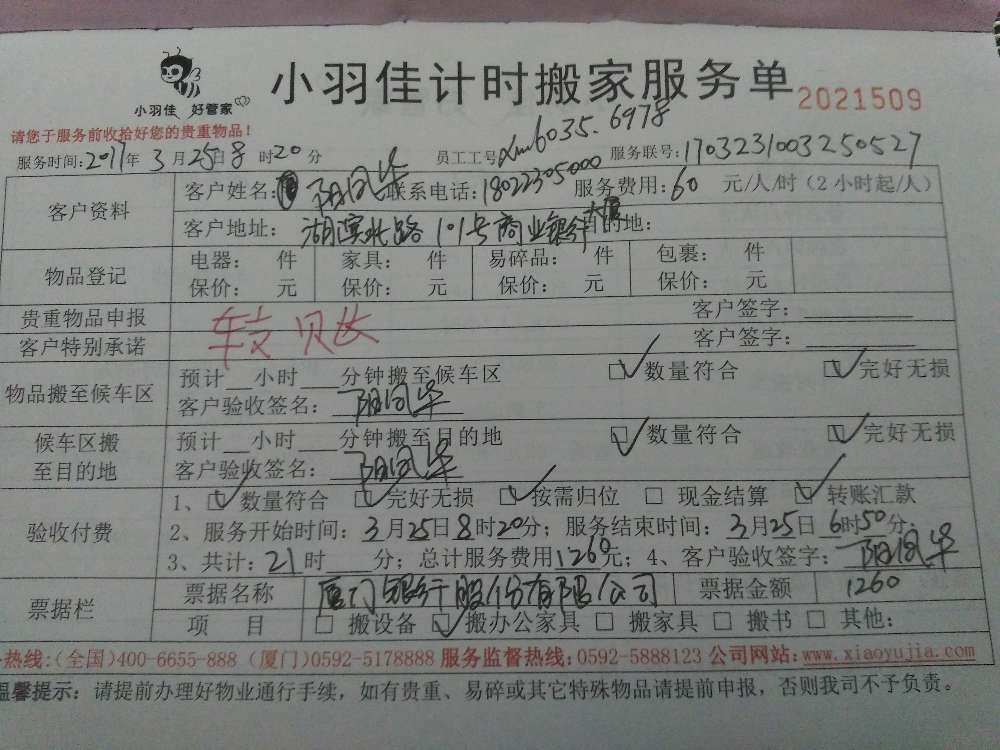 小羽佳 好管家
小羽佳计时搬家服务单 2021509
请您于服务前收拾好您的贵重物品！
服务时间:2017年 3月25日8时20分 员工工号 6035.6978 服务联号:1703231003250527
客户资料 客户姓名: 阳凤华 联系电话:18022305000 服务费用:60 元/人/时（2小时起/人）
客户地址: 湖滨北路101号商业银行大厦 目的地:
物品登记 电器: 件 家具: 件 易碎品: 件 包裹: 件
保价: 元 保价: 元 保价: 元 保价: 元
贵重物品申报 客户签字:
客户特别承诺 客户签字:
物品搬至候车区 预计__小时___分钟搬至候车区 ☑数量符合 ☑完好无损
客户验收签名: 阳凤华
候车区搬至目的地 预计__小时___分钟搬至目的地 ☑数量符合 ☑完好无损
客户验收签名: 阳凤华
验收付费 1、☑数量符合 ☑完好无损 ☑按需归位 □现金结算 ☑转账汇款
2、服务开始时间: 3月25日8时20分; 服务结束时间: 3月25日 6时50分;
3、共计: 21时 分; 总计服务费用1260元; 4、客户验收签字: 阳凤华
票据栏 票据名称 厦门银行股份有限公司 票据金额 1260
项目 □搬设备 ☑搬办公家具 □搬家具 □搬书 □其他:
热线:(全国)400-6655-888 (厦门)0592-5178888 服务监督热线:0592-5888123 公司网站:www.xiaoyujia.com
温馨提示: 请提前办理好物业通行手续，如有贵重、易碎或其它特殊物品请提前申报，否则我司不予负责。